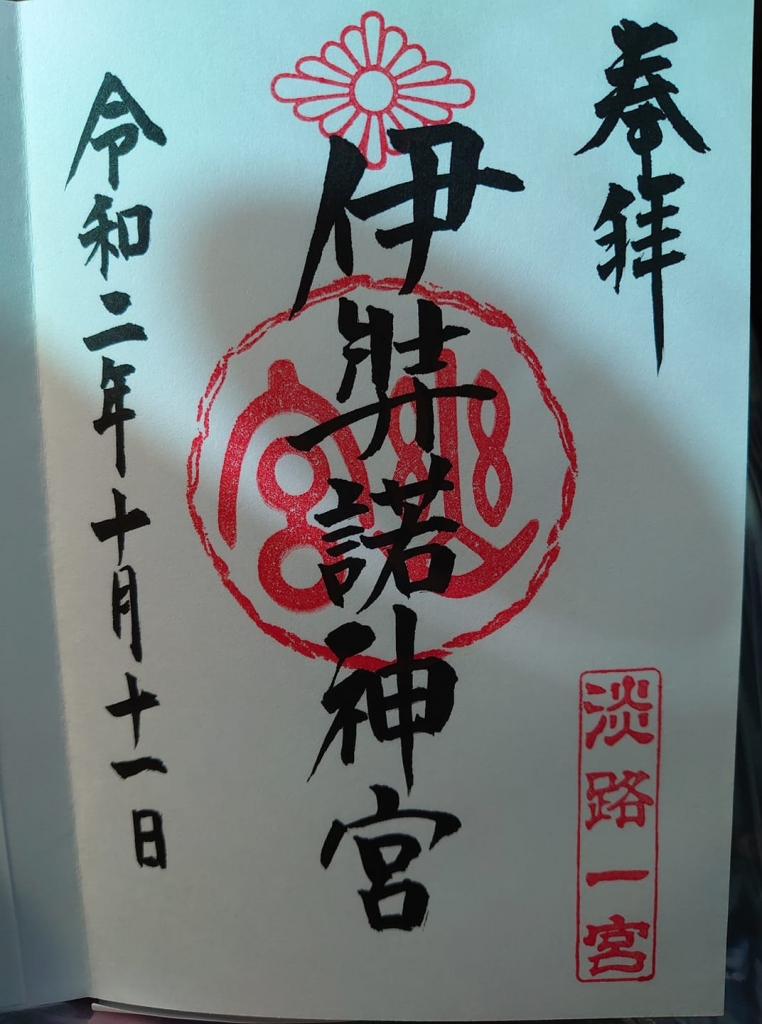 奉拝
淡路一宮
伊弉諾神宮
令和二年十月十一日